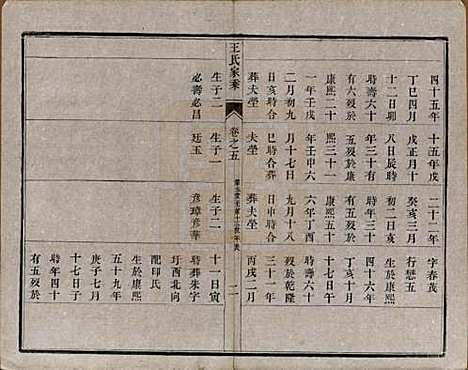 四十五年
丁巳四月
十二日卯
時壽六十
有六歿於
康熙二十
一年壬戌
二月初九
日亥時合
葬夫塋
十五年戊
戌正月十
八日辰時
年三十有
五歿於康
熙三十一
年壬申六
月十七日
巳時合葬
夫塋
二十二年
癸亥
初二日亥
時年三十
有五歿於
康熙五十
六年丁酉
九月十八
日申時合
葬夫塋
字春茂
行懋五
生於康熙
四十六年
丁亥十
十七日午
時壽六十
歿於乾隆
三十一年
丙戌二月
王氏家乘
卷之五
二
生子二
必壽必昌
生子一
廷玉
生子二
彥璋彥華
十一日寅
時葬朱字
圩酉北向
配印氏
生於康熙
五十九年
庚子七月
十七日子
時年四十
有五歿於